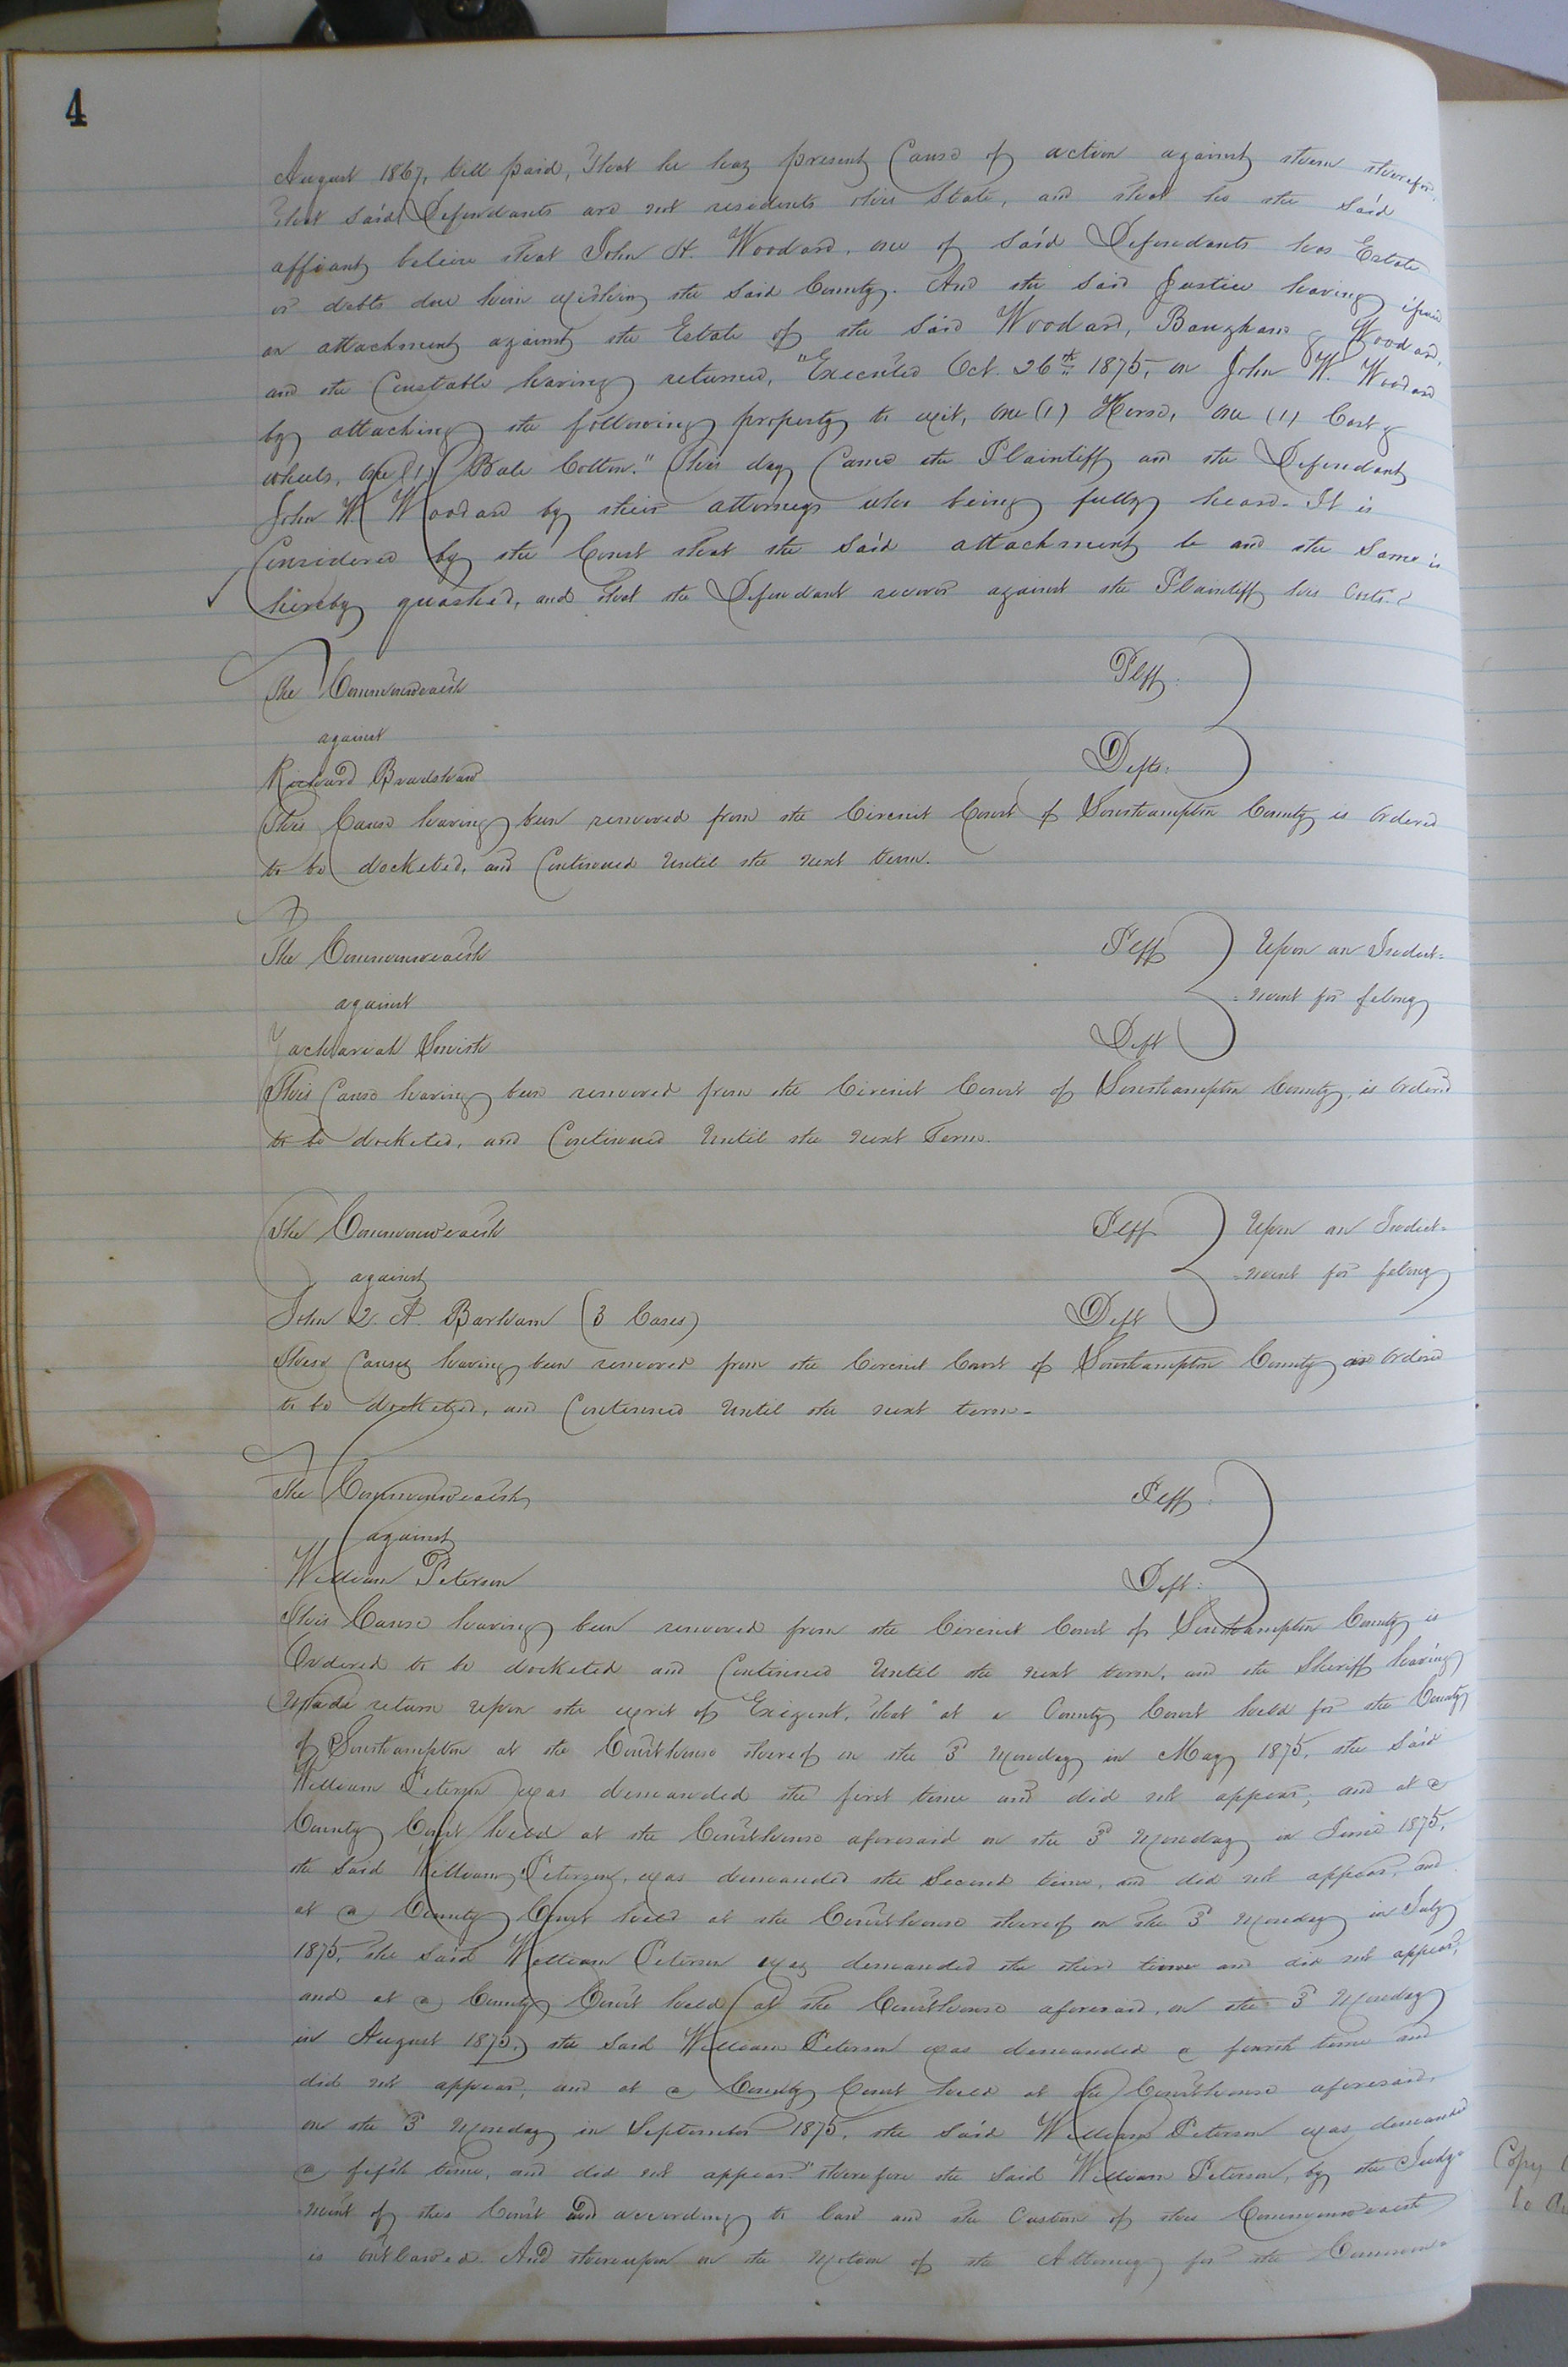 4
August 1867, till paid, that he has present Cause of action against them therefor,
that said Defendants are not residents this State, and that he the said
affiant believe that John H. Woodard, one of said Defendants has Estate
or debts due him within the said County. And the said Justice having issued
an attachment against the Estate of the said Woodard, Baugham & Woodard,
and the Constable having returned, "Executed Oct. 26th 1875, on John W. Woodard
by attaching the following property to wit, one (1) Horse, one (1) Cart &
wheels, one (1) Bale Cotton." This day Came the Plaintiff and the Defendant
John W Woodard by their attorneys who being fully heard. It is
Considered by the Court that the said attachment be and the same is
hereby quashed, and that the Defendant recover against the Plaintiff his Costs.
The Commonwealth Plff:
against
Richard Bradshaw Defts:
This Cause having been removed from the Circuit Court of Southampton County is Ordered
to be docketed, and Continued Until the next term.
The Commonwealth Plff Upon an Indict=
against =ment for felony
Zachariah Smith Deft
This Cause having been removed from the Circuit Court of Southampton County, is Ordered
to be docketed, and Continued Until the next Term.
The Commonwealth Plff Upon an Indict=
against =ment for felony
John Q. A. Barham (3 Cases) Deft
These Causes having been removed from the Circuit Court of Southampton County are Ordered
to be docketed, and Continued Until the next term.
The Commonwealth Plff:
against
William Peterson Deft:
This Cause having been removed from the Circuit Court of Southampton County is
Ordered to be docketed and Continued Until the next term, and the Sheriff having
Made return Upon the writ of Exigent, that "at a County Court held for the County
of Southampton at the Courthouse thereof on the 3d Monday in May 1875, the said
William Peterson was demanded the first time and did not appear, and at a
County Court held at the Courthouse aforesaid on the 3d Monday in June 1875,
the said William Peterson, was demanded the Second time, and did not appear, and
at a County Court held at the Courthouse thereof on the 3d Monday in July
1875, the said William Peterson was demanded the third time and did not appear,
and at a County Court held at the Courthouse aforesaid, on the 3d Monday
in August 1875, the said William Peterson was demanded a fourth time and
did not appear, and at a County Court held at the Courthouse aforesaid,
on the 3d Monday in September 1875, the said William Peterson was demanded
a fifth time, and did not appear." therefore the said William Peterson, by the Judg=
ment of this Court and according to law and the Custom of this Commonwealth
is Outlawed. And thereupon on the Motion of the Attorney for the Common=
Copy
to